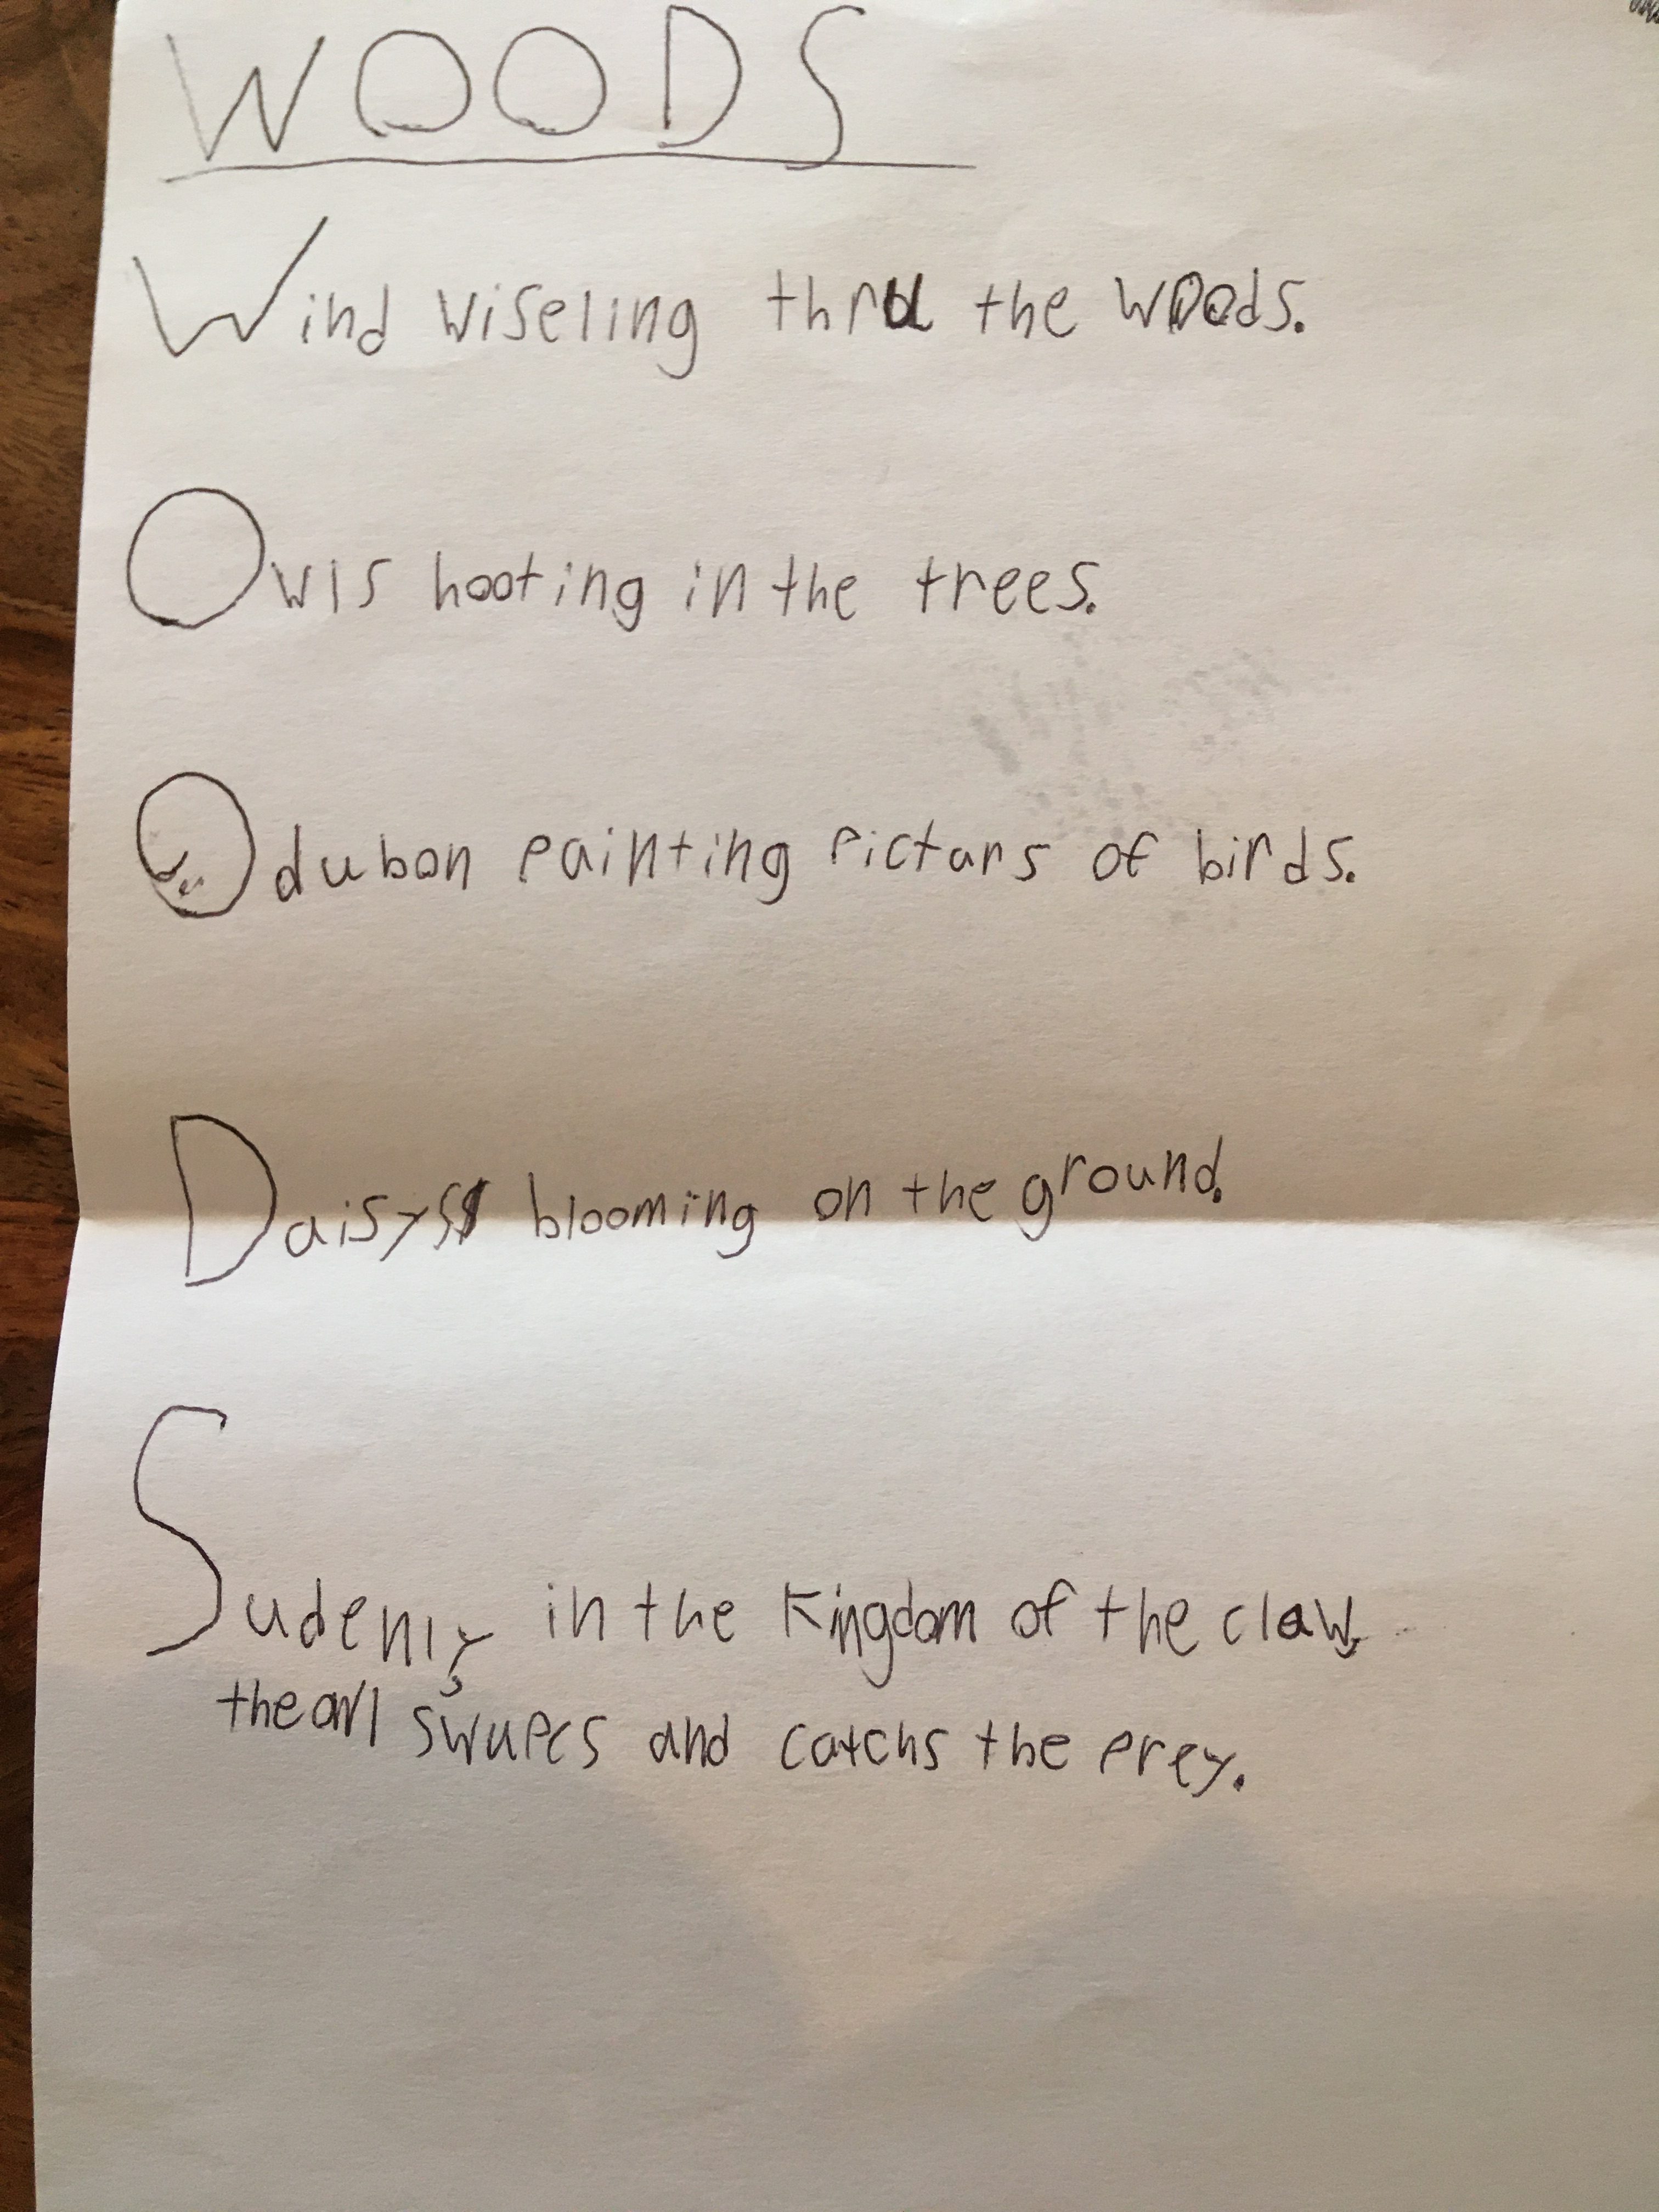 WOODS
Wind wiseling thru the woods.
Owls hooting in the trees.
Odubon painting picturs of birds.
Daisys blooming on the ground.
Sudenly, in the Kingdom of the claw,
the owl swupes and catchs the prey.